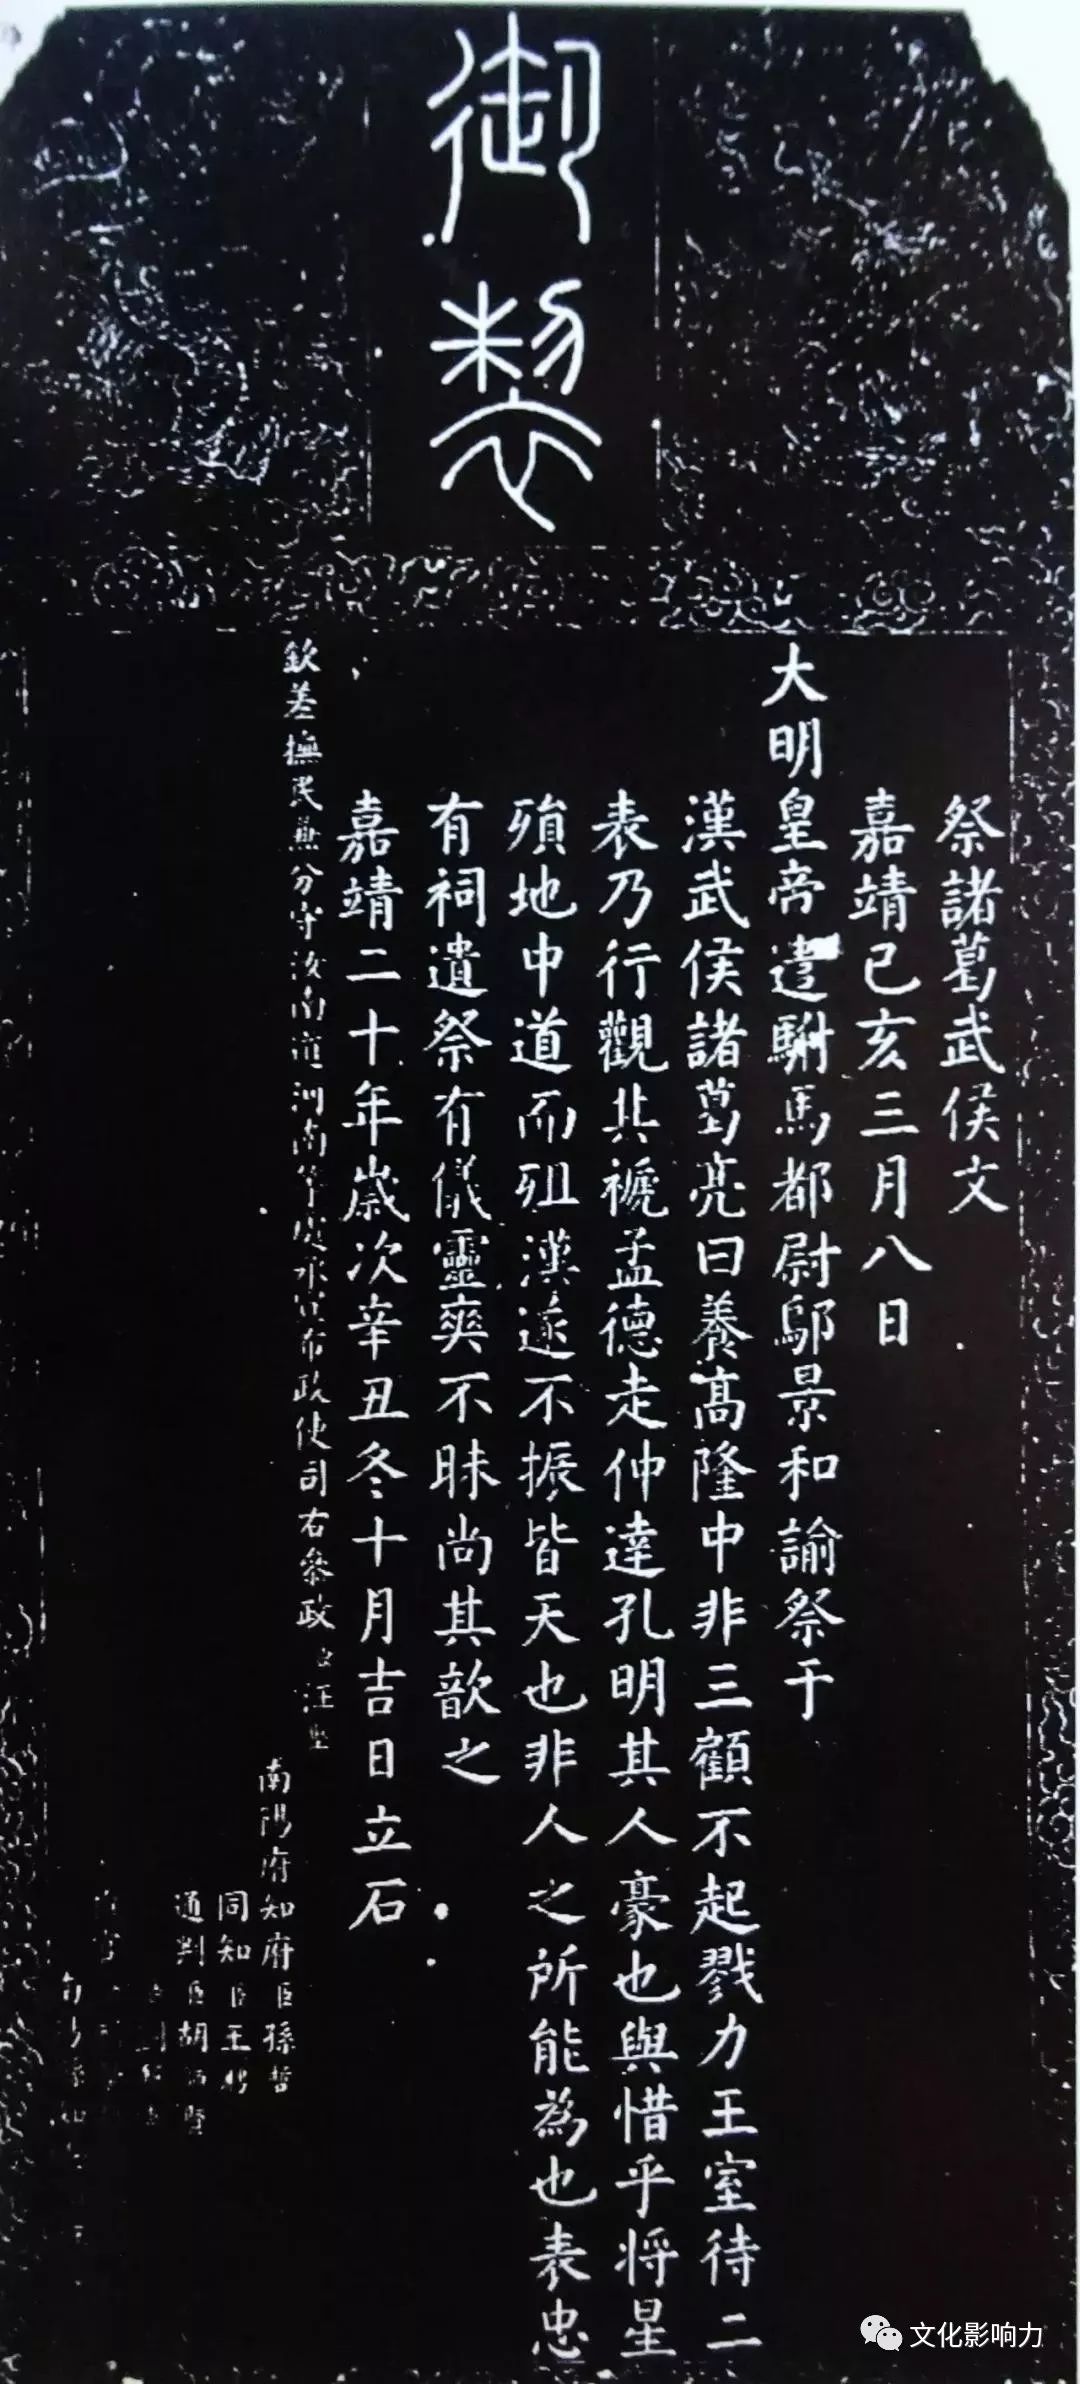 御製
祭諸葛武侯文
嘉靖己亥三月八日
大明皇帝遣駙馬都尉鄔景和諭祭于
漢武侯諸葛亮曰養高隆中非三顧不起戮力王室待二
表乃行觀其褫孟德走仲達孔明其人豪也與惜乎将星
殞地中道而殂漢遂不振皆天也非人之所能為也表忠
有祠遺祭有儀靈爽不昧尚其歆之
嘉靖二十年歲次辛丑冬十月吉日立石
欽差撫民兼分守汝南道河南等處承宣布政使司右參政臣汪堅
南陽府知府臣孫哲
同知臣王
通判臣胡
文化影响力